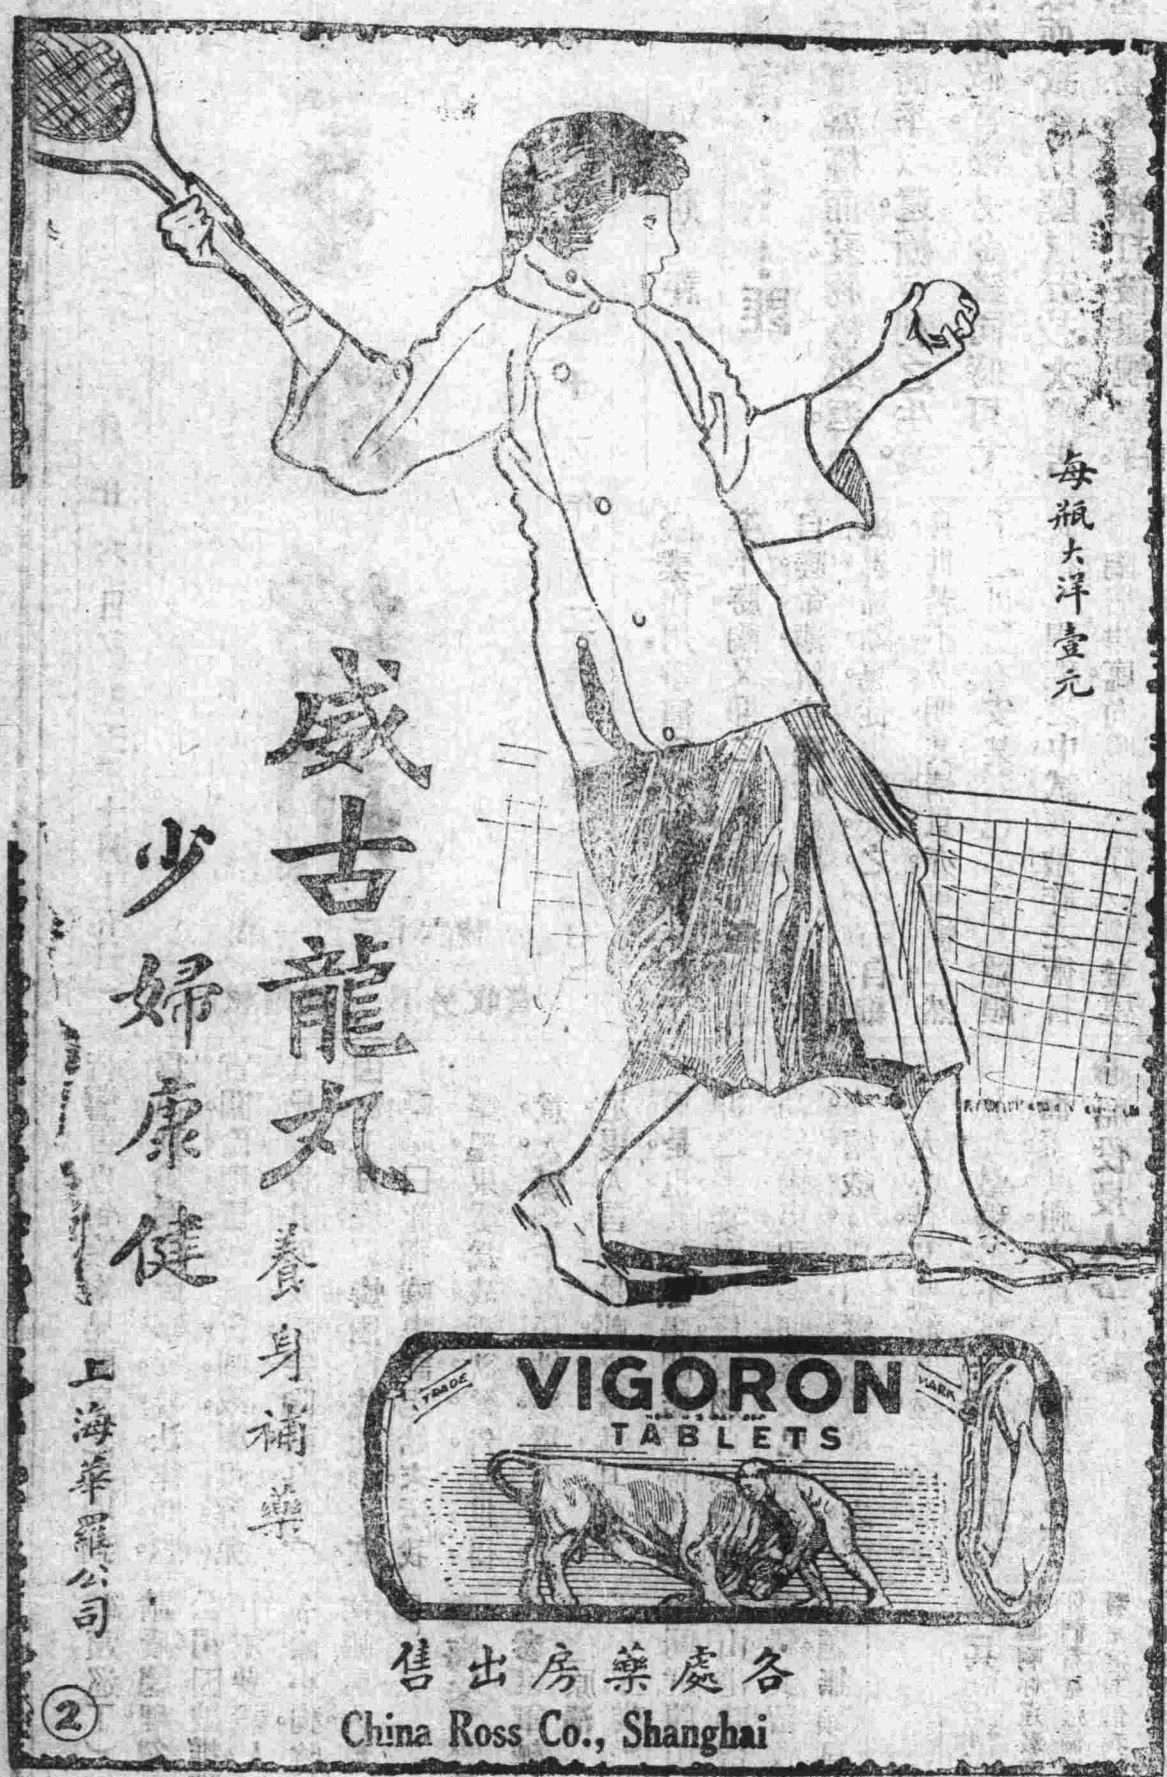 每瓶大洋壹元
威古龍丸
養身補藥
少婦康健
上海華羅公司
TRADE
MARK
VIGORON
TABLETS
各處藥房出售
China Ross Co., Shanghai
2